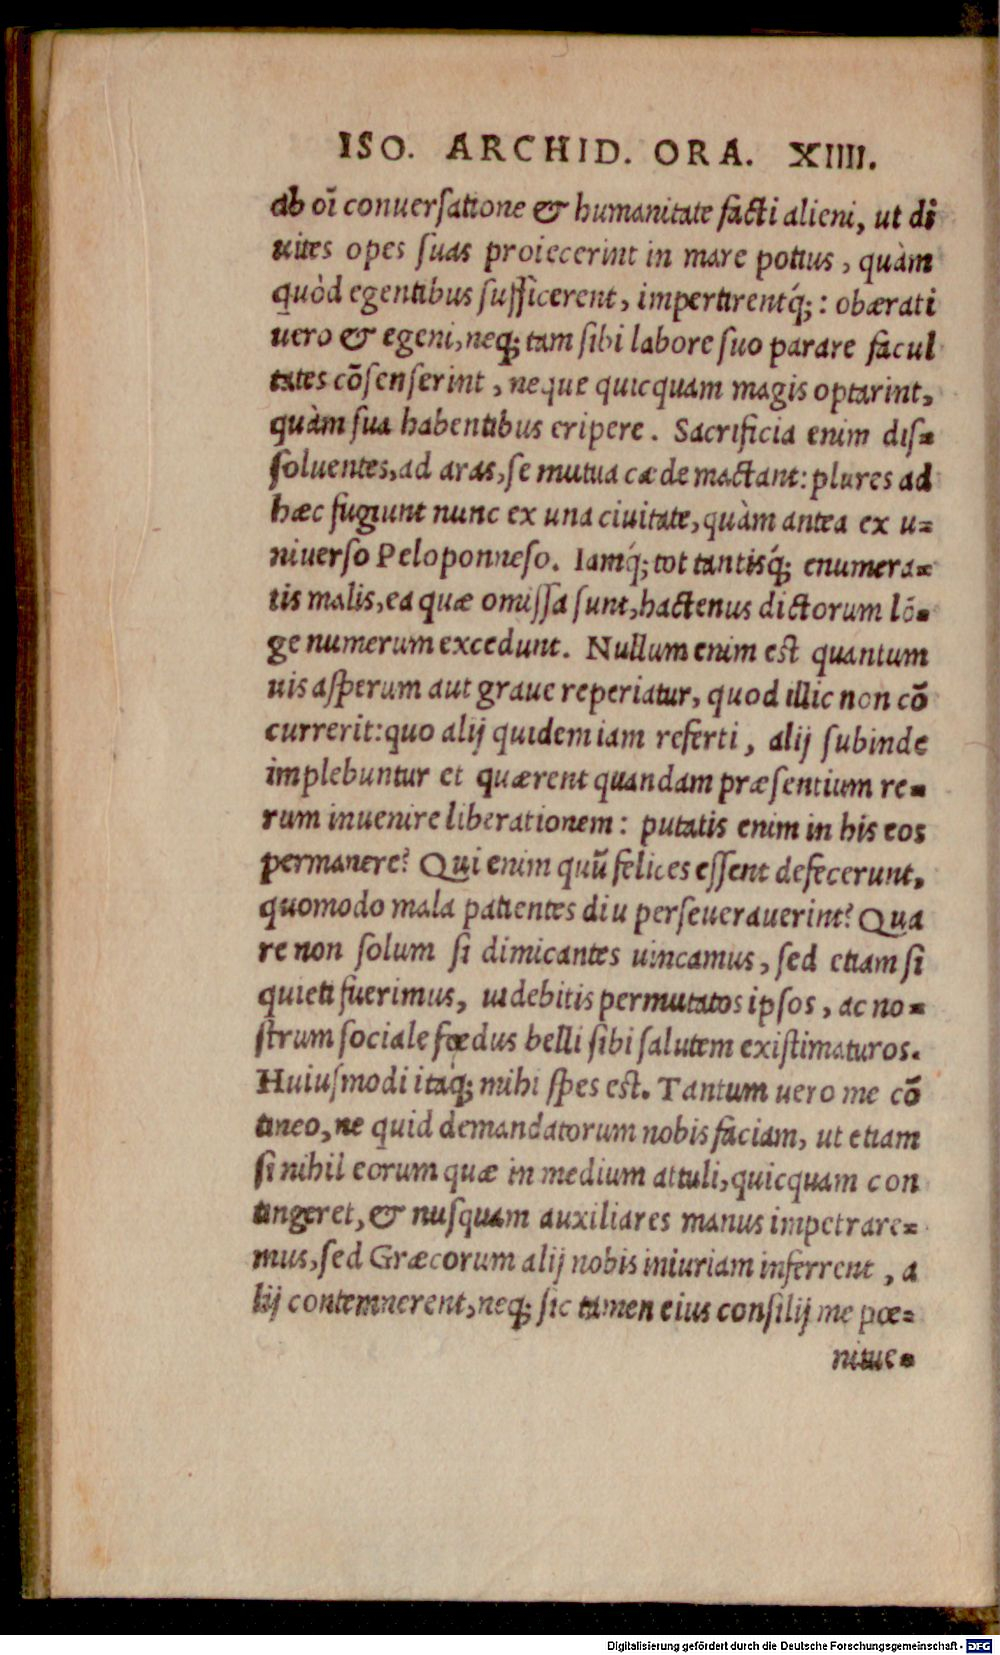 ISO. ARCHID. ORA. XIIII.
ab oī conuerſatione & humanitate facti alieni, ut di
uites opes ſuas proiecerint in mare potius, quàm
quòd egentibus ſufficerent, impertirentq́;: obærati
uero & egeni, neq; tam ſibi labore ſuo parare facul
tates cōſenſerint, neque quicquam magis optarint,
quàm ſua habentibus eripere. Sacrificia enim diſ=
ſoluentes, ad aras, ſe mutua cæde mactant: plures ad
hæc fugiunt nunc ex una ciuitate, quàm antea ex u=
niuerſo Peloponneſo. Iamq́; tot tantisq́; enumera=
tis malis, ea quæ omiſſa ſunt, hactenus dictorum lō=
ge numerum excedunt. Nullum enim est quantum
uis aſperum aut graue reperiatur, quod illic non cō
currerit: quo alij quidem iam referti, alij ſubinde
implebuntur et quærent quandam præſentium re=
rum inuenire liberationem: putatis enim in his eos
permanere? Qui enim quū felices eſſent defecerunt,
quomodo mala patientes diu perſeuerauerint? Qua
re non ſolum ſi dimicantes uincamus, ſed etiam ſi
quieti fuerimus, uidebitis permutatos ipſos, ac no=
ſtrum ſociale fœdus belli ſibi ſalutem exiſtimaturos.
Huiuſmodi itaq́; mihi ſpes est. Tantum uero me cō
tineo, ne quid demandatorum nobis faciam, ut etiam
ſi nihil eorum quæ in medium attuli, quicquam con
tingeret, & nuſquam auxiliares manus impetrare=
mus, ſed Græcorum alij nobis iniuriam inferrent, a
lij contemnerent, neq; ſic tamen eius conſilij me pœ=
nitue=
Digitalisierung gefördert durch die Deutsche Forschungsgemeinschaft - DFG